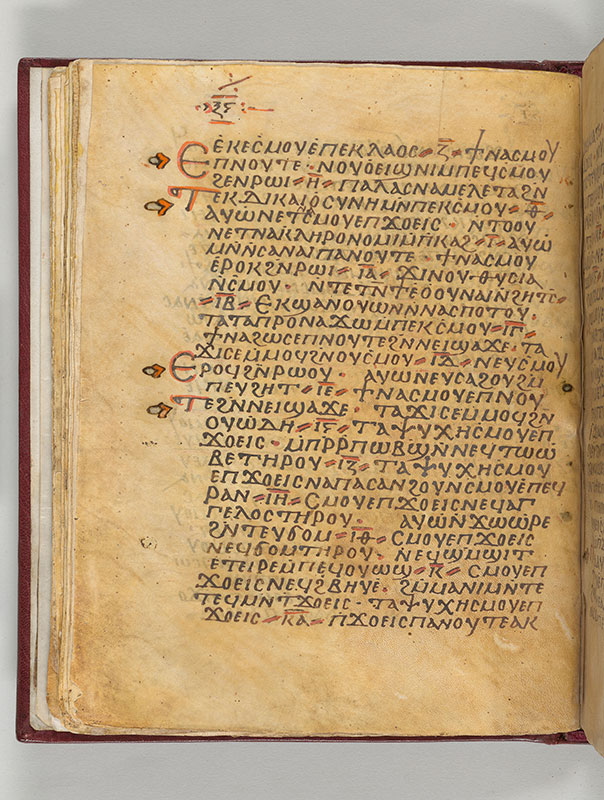 ⲝ︦ⲋ︦
ⲉⲉⲕⲉⲥⲙⲟⲩⲉⲡⲉⲕⲗⲁⲟⲥ⸗ⲍ̅⸗ϯⲛⲁⲥⲙⲟⲩ
ⲉⲡⲛⲟⲩⲧⲉ·ⲛⲟⲩⲟⲉⲓϣⲛⲓⲙⲡⲉϥⲥⲙⲟⲩ
ϩⲛⲣⲱⲓ⸗ⲏ̅⸗ⲡⲁⲗⲁⲥⲛⲁⲙⲉⲗⲉⲧⲁϩⲛ
ⲧⲉⲕⲇⲓⲕⲁⲓⲟⲥⲩⲛⲏⲙⲛⲡⲉⲕⲥⲙⲟⲩ⸗ⲑ̅⸗
ⲁⲩⲱⲛⲉⲧⲥⲙⲟⲩⲉⲡϫⲟⲉⲓⲥ·ⲛⲧⲟⲟⲩ
ⲛⲉⲧⲛⲁⲕⲗⲏⲣⲟⲛⲟⲙⲓⲙⲡⲕⲁϩ⸗ⲓ̅⸗ⲁⲩⲱ
ⲙⲛⲛⲥⲁⲛⲁⲓⲡⲁⲛⲟⲩⲧⲉ·ϯⲛⲁⲥⲙⲟⲩ
ⲉⲣⲟⲕϩⲛⲣⲱⲓ⸗ⲓ̅ⲁ̅⸗ϫⲓⲛⲟⲩⲑⲩⲥⲓⲁ
ⲛⲥⲙⲟⲩ·ⲛⲧⲉⲧⲛϯⲉⲟⲟⲩⲛⲁⲓⲛϩⲏⲧⲥ⸗
⸗ⲓ̅ⲃ̅⸗ⲉⲕϣⲁⲛⲟⲩⲱⲛⲛⲛⲁⲥⲡⲟⲧⲟⲩ·
ⲧⲁⲧⲁⲡⲣⲟⲛⲁϫⲱⲙⲡⲉⲕⲥⲙⲟⲩ⸗ⲓ̅ⲅ̅⸗
ϯⲛⲁϩⲱⲥⲉⲡⲛⲟⲩⲧⲉϩⲛⲛⲉⲓϣⲁϫⲉ·ⲧⲁ
ϫⲓⲥⲉⲙⲙⲟϥϩⲛⲟⲩⲥⲙⲟⲩ⸗ⲓ̅ⲇ̅⸗ⲛⲉⲩⲥⲙⲟⲩ
ⲉⲣⲟϥϩⲛⲣⲱⲟⲩ·ⲁⲩⲱⲛⲉⲩⲥⲁϩⲟⲩϩⲙ
ⲡⲉⲩϩⲏⲧ⸗ⲓ̅ⲉ̅⸗ϯⲛⲁⲥⲙⲟⲩⲉⲡⲛⲟⲩ
ⲧⲉϩⲛⲛⲉⲓϣⲁϫⲉ·ⲧⲁϫⲓⲥⲉⲙⲙⲟϥϩⲛ
ⲟⲩⲱⲇⲏ⸗ⲓ̅ⲋ̅⸗ⲧⲁⲯⲩⲭⲏⲥⲙⲟⲩⲉⲡ
ϫⲟⲉⲓⲥ·ⲙⲡⲣⲣⲡⲱⲃϣⲛⲛⲉϥⲧⲱⲱ
ⲃⲉⲧⲏⲣⲟⲩ·ⲓ̅ⲍ̅⸗ⲧⲁⲯⲩⲭⲏⲥⲙⲟⲩ
ⲉⲡϫⲟⲉⲓⲥⲛⲁⲡⲁⲥⲁⲛϩⲟⲩⲛⲥⲙⲟⲩⲉⲡⲉϥ
ⲣⲁⲛ⸗ⲓ̅ⲏ̅⸗ⲥⲙⲟⲩⲉⲡϫⲟⲉⲓⲥⲛⲉϥⲁⲅ
ⲅⲉⲗⲟⲥⲧⲏⲣⲟⲩ·ⲁⲩⲱⲛϫⲱⲱⲣⲉ
ϩⲛⲧⲉⲩϭⲟⲙ⸗ⲓ̅ⲑ̅⸗ⲥⲙⲟⲩⲉⲡϫⲟⲉⲓⲥ
ⲛⲉϥϭⲟⲙⲧⲏⲣⲟⲩ·ⲛⲉϥϣⲙϣⲓⲧ
ⲉⲧⲉⲓⲣⲉⲙⲡⲉϥⲟⲩⲱϣ⸗ⲕ̅⸗ⲥⲙⲟⲩⲉⲡ
ϫⲟⲉⲓⲥⲛⲉϥϩⲃⲏⲩⲉ·ϩⲙⲙⲁⲛⲓⲙⲛⲧⲉ
ⲧⲉϥⲙⲛⲧϫⲟⲉⲓⲥ·ⲧⲁⲯⲩⲭⲏⲥⲙⲟⲩⲉⲡ
ϫⲟⲉⲓⲥ⸗ⲕ̅ⲁ̅⸗ⲡϫⲟⲉⲓⲥⲡⲁⲛⲟⲩⲧⲉⲁⲕ